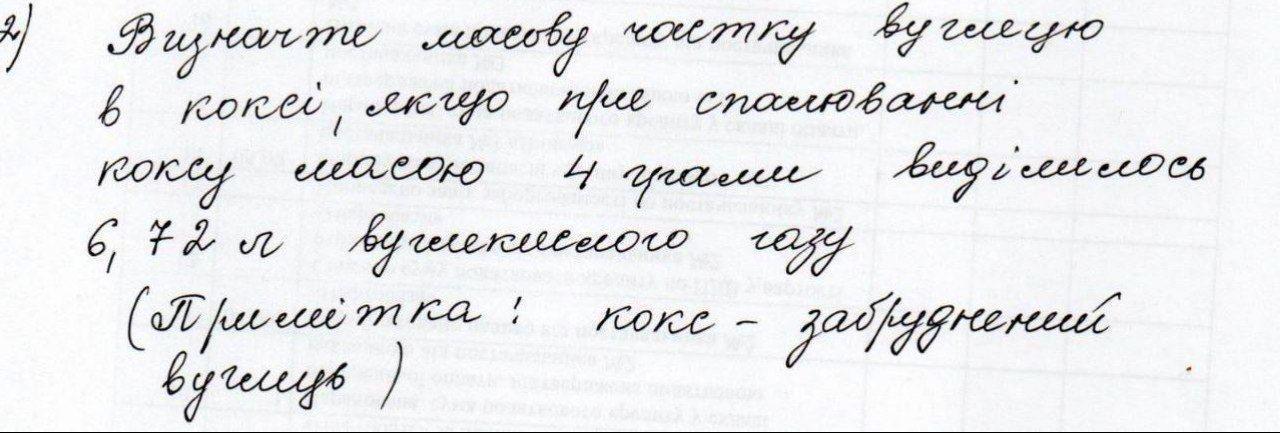 2) Визначте масову частку вуглецю
в коксі, якщо при спалюванні
коксу масою 4 грами виділилось
6,72 л вуглекислого газу
(Примітка: кокс - забруднений
вуглець)